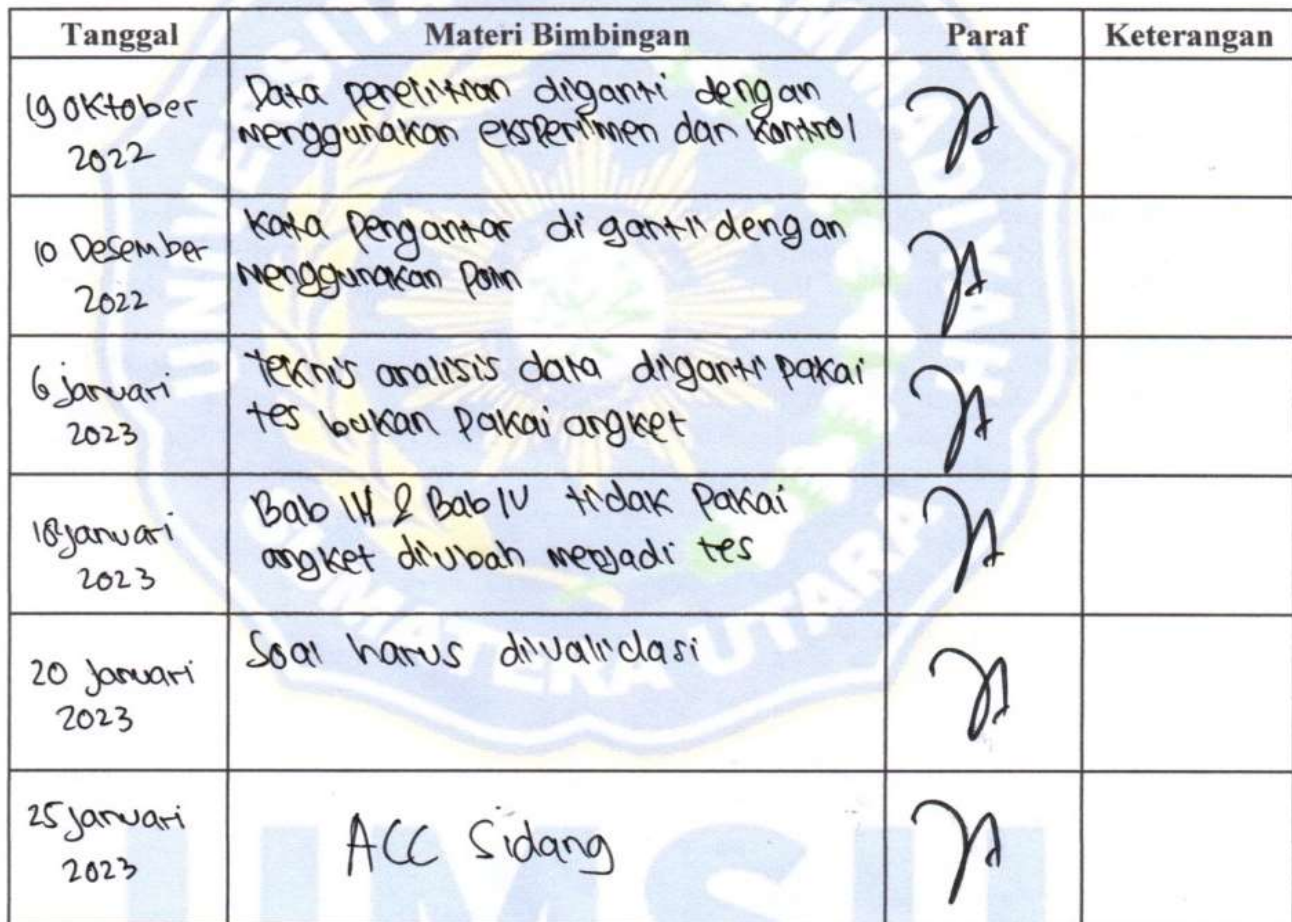 Tanggal Materi Bimbingan Paraf Keterangan
19 Oktober
2022
Data penelitian diganti dengan
menggunakan eksperimen dan kontrol
10 Desember
2022
Kata pengantar di ganti dengan
menggunakan poin
6 Januari
2023
Teknis analisis data diganti pakai
tes bukan pakai angket
18 Januari
2023
Bab III & Bab IV tidak pakai
angket diubah menjadi tes
20 Januari
2023
Soal harus divalidasi
25 Januari
2023
ACC Sidang
SUMATERA UTARA
UMSU